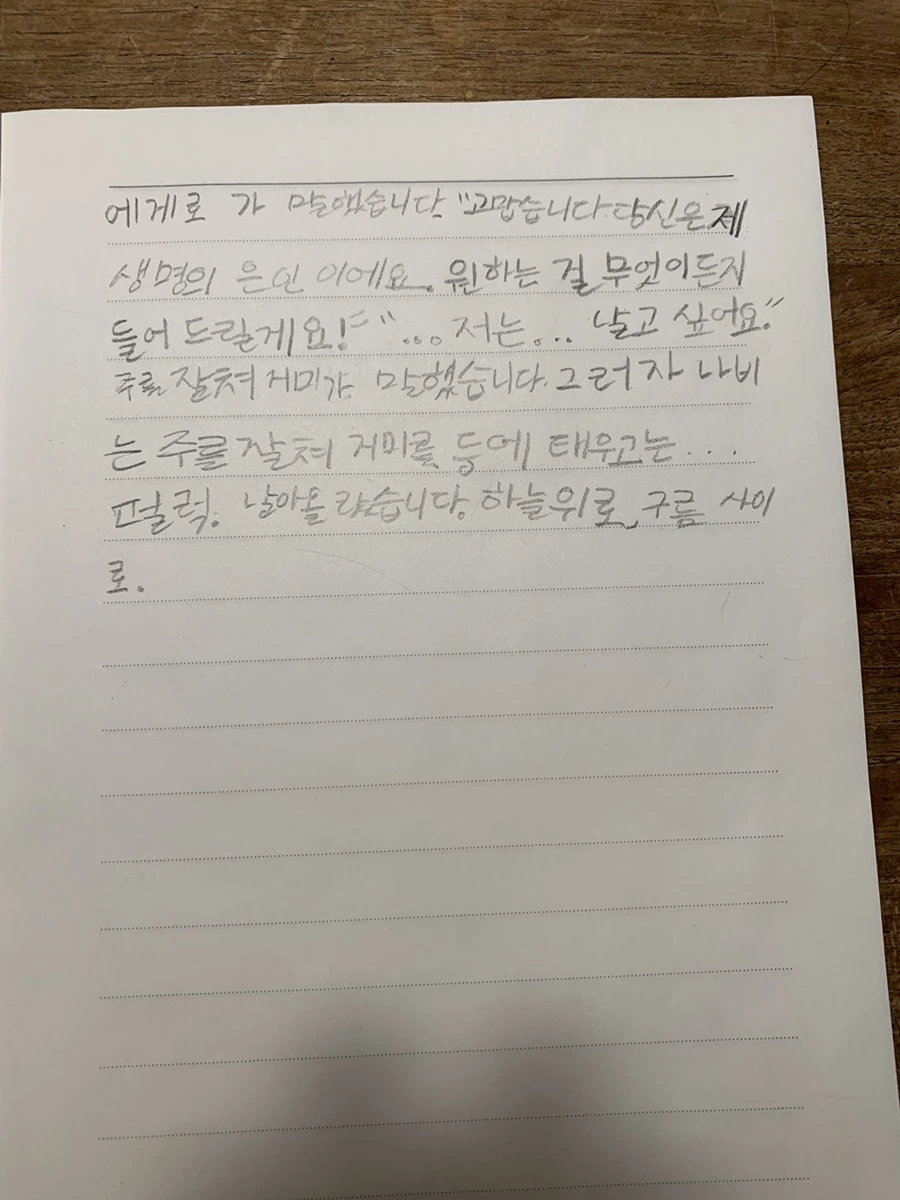 에게로 가 말했습니다. "고맙습니다. 당신은 제
생명의 은인 이에요. 원하는 걸 무엇이든지
들어 드릴게요!" "...저는... 날고 싶어요."
주를 잘쳐 거미가 말했습니다. 그러자 나비
는 주를 잘쳐 거미를 등에 태우고는...
펄럭. 날아올랐습니다. 하늘위로, 구름 사이
로.